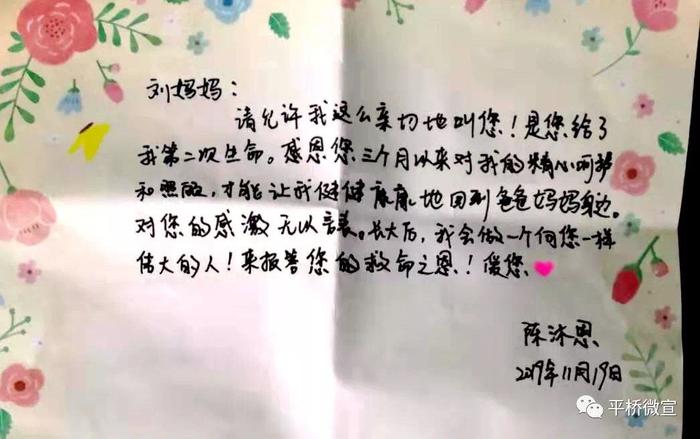 刘妈妈：
请允许我这么亲切地叫您！是您给了
我第二次生命。感恩您三个月以来对我的精心呵护
和照顾，才能让我健健康康地回到爸爸妈妈身边。
对您的感激无以言表。长大后，我会做一个向您一样
伟大的人！来报答您的救命之恩！爱您
陈沐恩
2019年11月19日
平桥微宣